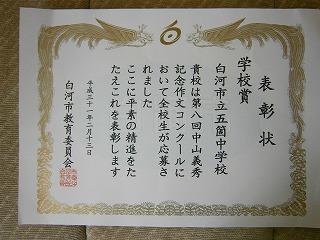 表彰状
学校賞
白河市立五箇中学校
貴校は第八回中山義秀
記念作文コンクールに
おいて全校生が応募さ
れました
ここに平素の精進をた
たえこれを表彰します
平成三十一年二月十三日
白河市教育委員会